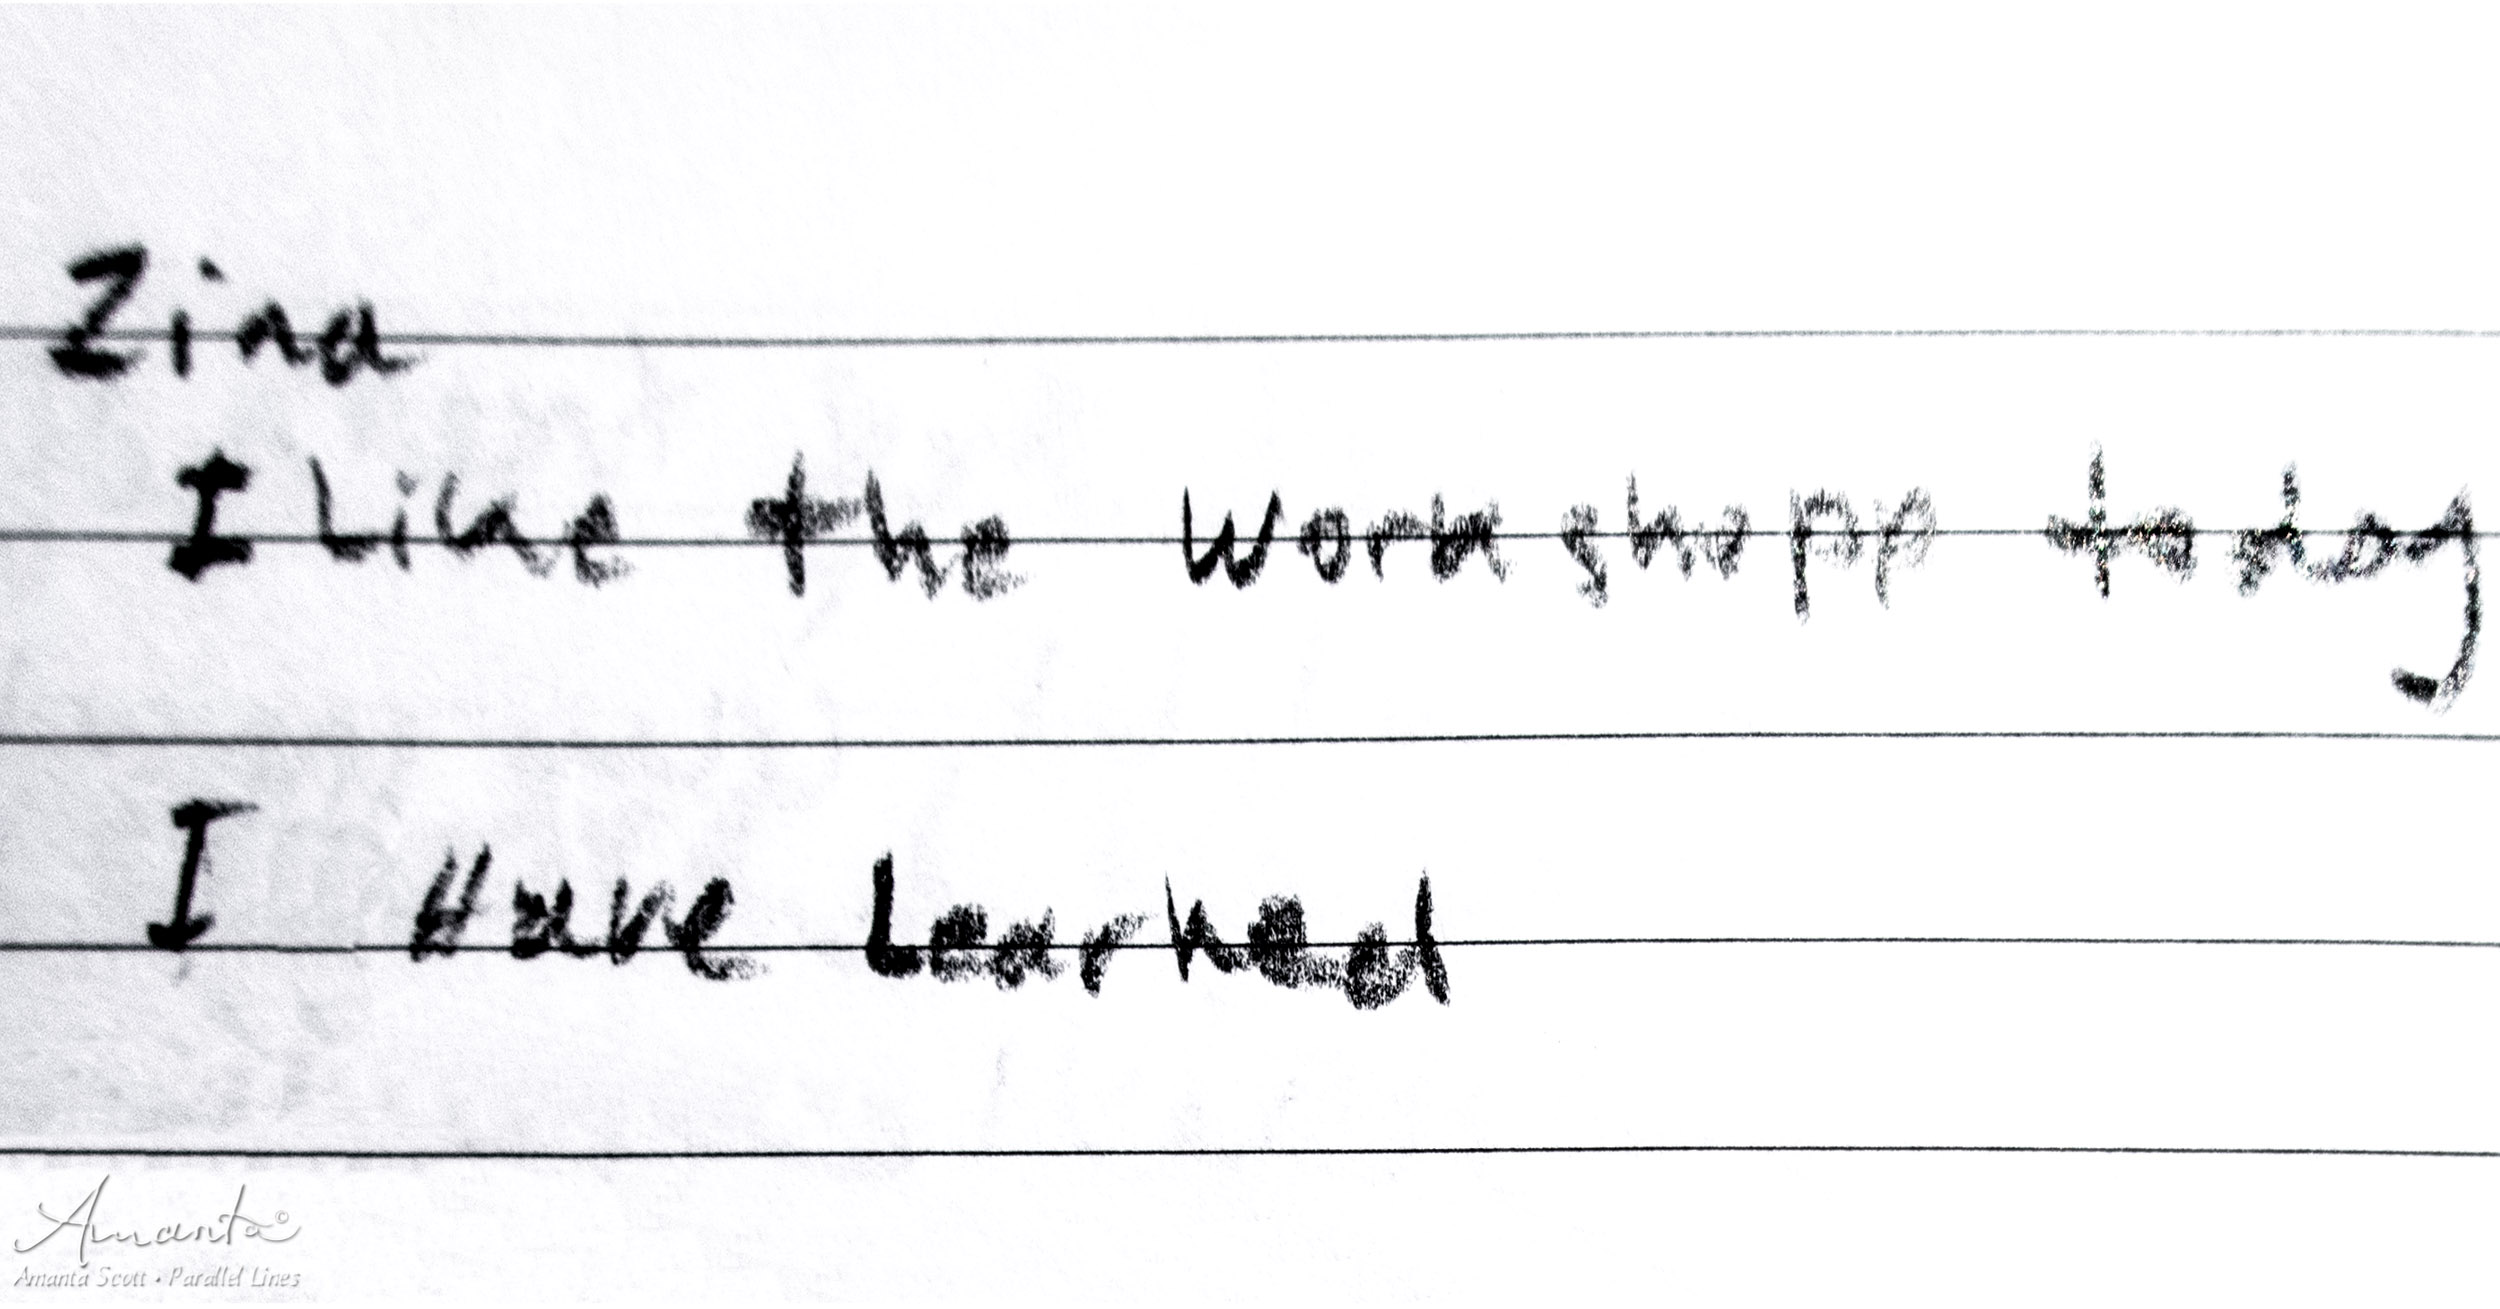 Zina
I Like the workshopp today
I Have Learned
Amanta©
Amanta Scott • Parallel Lines